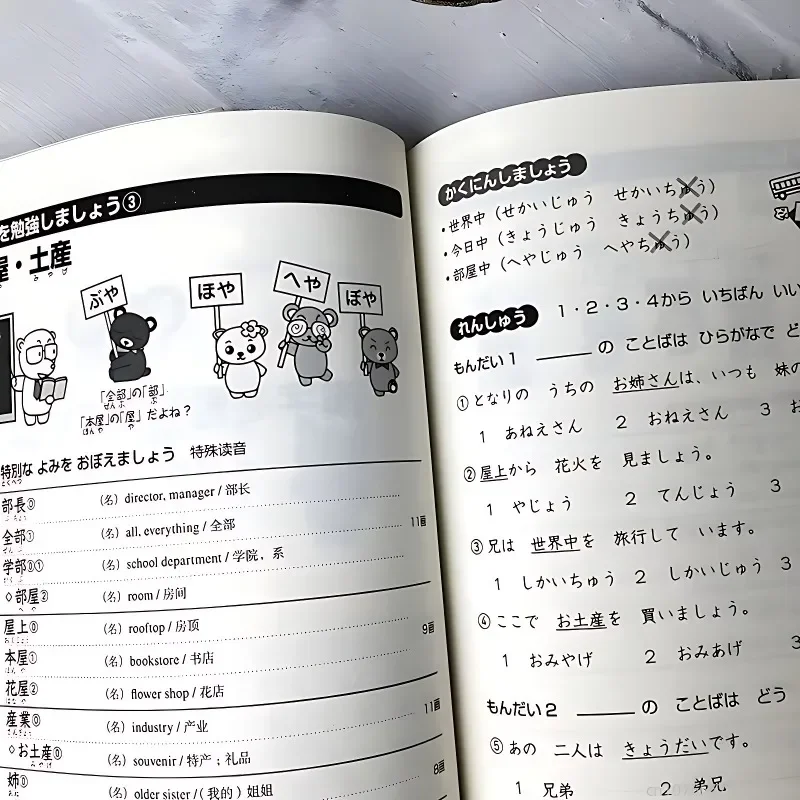 を勉強しましょう③
屋・土産
みやげ
ぶや
ほや
へや
ぼや
「全部」の「部」
ぜんぶ ぶ
「本屋」の「屋」だよね？
ほんや や
特別な よみを おぼえましょう 特殊读音
とくべつ
部長⓪ （名）director, manager / 部长
全部① （名）all, everything / 全部
11画
学部⓪① （名）school department / 学院，系
◇部屋② （名）room / 房间
へや
屋上⓪ （名）rooftop / 房顶
おくじょう
9画
本屋① （名）bookstore / 书店
ほんや
花屋② （名）flower shop / 花店
はなや
11画
産業⓪ （名）industry / 产业
さんぎょう
◇お土産⓪ （名）souvenir / 特产；礼品
みやげ
8画
姉⓪ （名）older sister /（我的）姐姐
あね
かくにんしましょう
・世界中（せかいじゅう せかいちゅう）
・今日中（きょうじゅう きょうちゅう）
・部屋中（へやじゅう へやちゅう）
れんしゅう 1・2・3・4から いちばん いい
もんだい1 ＿＿＿の ことばは ひらがなで ど
①となりの うちの お姉さんは、いつも 妹の
1 あねえさん 2 おねえさん 3 お
②屋上から 花火を 見ましょう。
1 やじょう 2 てんじょう 3
③兄は 世界中を 旅行して います。
1 しかいちゅう 2 しかいじゅう 3
④ここで お土産を 買いましょう。
1 おみやげ 2 おみあげ 3
もんだい2 ＿＿＿の ことばは どう
⑤あの 二人は きょうだいです。
1 兄弟 2 弟兄